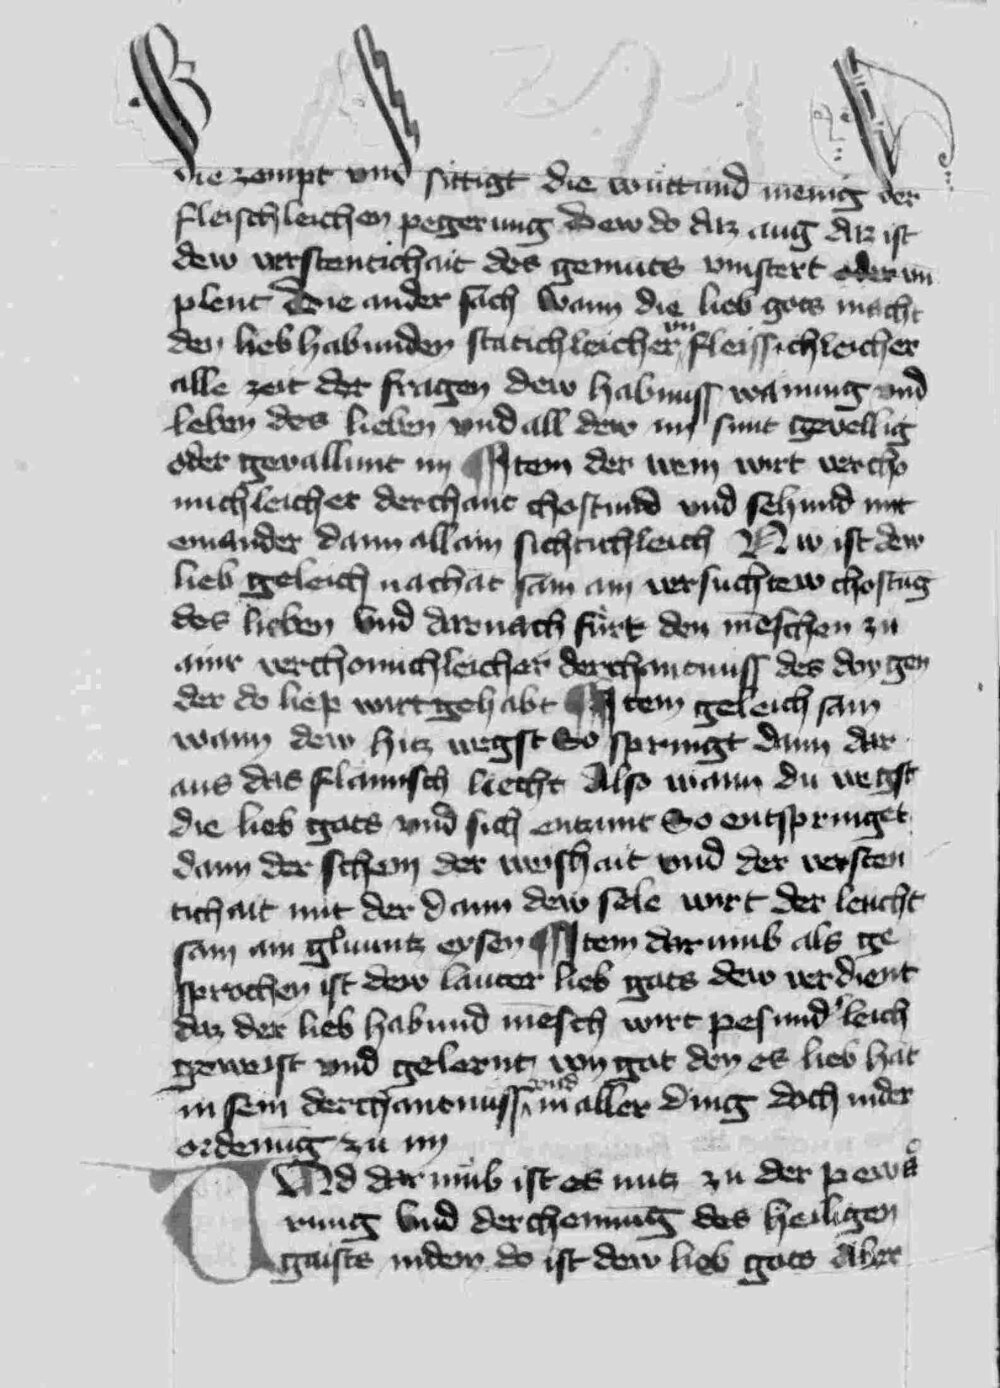 die zempt vnd sittigt die wuttund menig der
fleischleichen pegerung Dew do daz aug daz ist
dew verstentichait des gemuts vinstert oder vm
plent Die ander sach Wann die lieb gots macht
den lieb habunden statichleicher vnd fleissichleicher
alle zeit der fragen dew habnuss wanung vnd
leben des lieben vnd all dew im sunt gevellig
oder gevallunt im Item der wein wirt vercho
michleicher derchant chostund vnd sehund mit
einander dann allain sichtichleich Nw ist dew
lieb geleich nachat sam ain versuchtew chostūg
des lieben Vnd darnach fürt den mēschen zu
ainr verchomichleicher derchantnuss des dorgen
der do liep wirt gehabt Item geleich sam
wann dew hitz wegst So springt dann dar
aus das flamisch liecht Also wann du wegst
die lieb gots vnd sich entzunt So entspringet
dann der schein der weishait vnd der versten
tichait mit der dann dew sele wirt der leucht
sam ain gluuntz eysen Item darumb als ge
sprochen ist dew lauter lieb gots dew verdient
daz der lieb habund mēsch wirt pesundleich
geweist vnd gelernt von got den es lieb hat
in sein derchantnuss vnd in aller ding doch in der
ordenūg zu im
Vnd darumb ist es nutz zu der pewa
rung Vnd derchennūg des heiligen
gaists in dem do ist dew lieb gots Aber